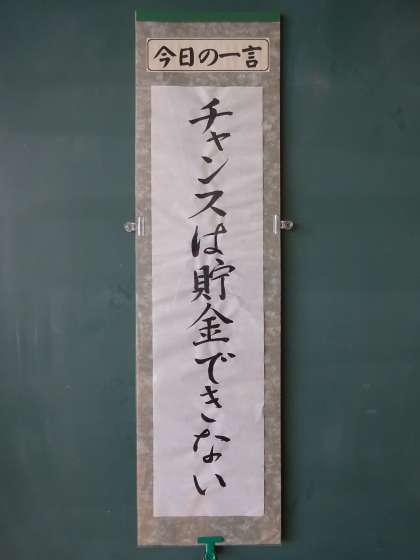 今日の一言
チャンスは貯金できない